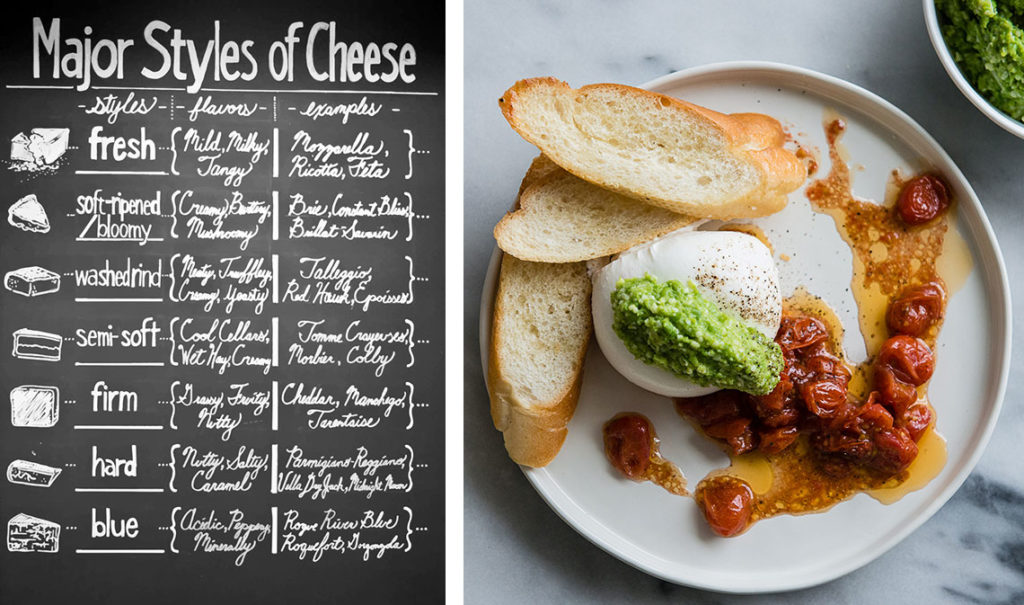 Major Styles of Cheese
-styles- flavors -examples-
fresh Mild, Milky, Mozzarella,
Tangy Ricotta, Feta
soft-ripened Creamy, Buttery, Brie, Constant Bliss,
/bloomy Mushroomy Brillat-Savarin
washed rind Meaty, Truffley, Talleggio,
Creamy, Yeasty Red Hawk, Epoisses
semi-soft Cool Cellars, Tomme Crayeuses,
Wet Hay, Creamy Morbier, Colby
firm Grassy, Fruity, Cheddar, Manchego,
Nutty Tarentaise
hard Nutty, Salty, Parmigiano-Reggiano,
Caramel Vella Dry Jack, Midnight Moon
blue Acidic, Peppery, Rogue River Blue
Minerally Roquefort, Gorgonzola